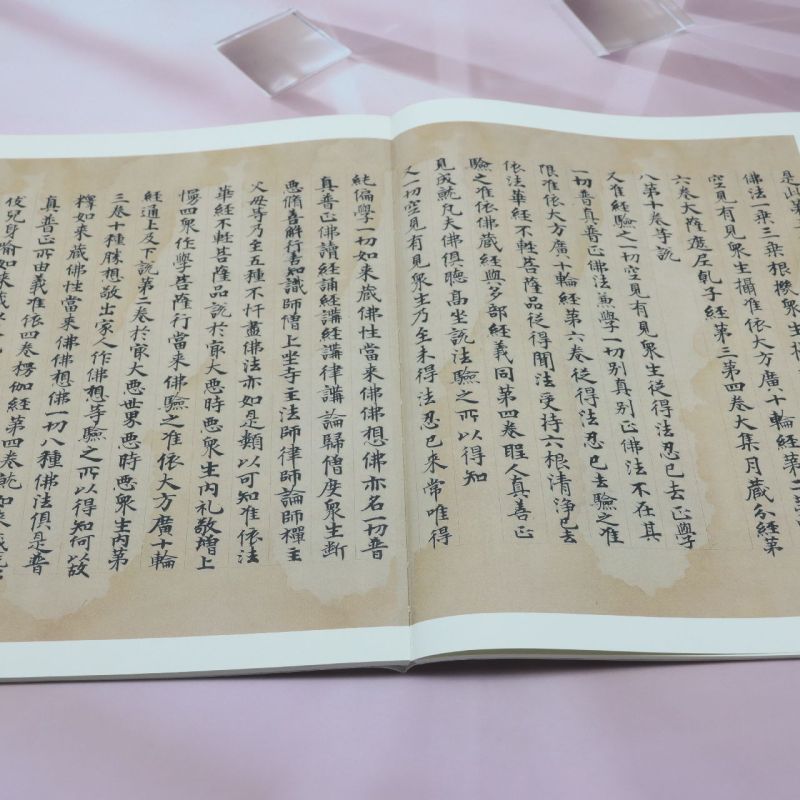 佛法一乘三乘根機衆生
空見有見衆生攝准依大方廣十輪經第二
六卷大薩遮尼乹子經第三第四卷大集月藏分經第
八第十卷等說
又准經驗之一切空見有見衆生從得法忍已去正學
一切普真普正佛法魚學一切別真別正佛法不在其
限准依大方廣十輪經第六卷從得法忍已去驗之准
依法華經不輕菩薩品從得聞法受持六根清淨已去
驗之准依佛藏經與多部經義同第四卷暇人真善正
見成就凡夫佛俱聽高坐說法驗之所以得知
又一切空見有見衆生乃至未得法忍已來常唯得
純偏學一切如來藏佛性當來佛佛想佛亦名一切普
真普正佛讀經誦經講經講律講論歸僧度衆生斷
惡脩善解行善知識師僧上坐寺主法師律師論師禪主
父母等乃至五種不忏盡佛法亦如是類以可知准依法
華經不輕菩薩品說於㝡大惡時惡衆生內礼敬增上
慢四衆任學菩薩行當來佛驗之准依大方廣十輪
經通上及下說第二卷於㝡大惡世界惡時惡衆生內第
三卷十種勝想敬出家人作佛想等驗之所以得知何以故
釋如來藏佛性當來佛佛想佛一切八種佛法俱是普
真普正所由義准依四卷楞伽經第四卷
伎兒身喻如來藏